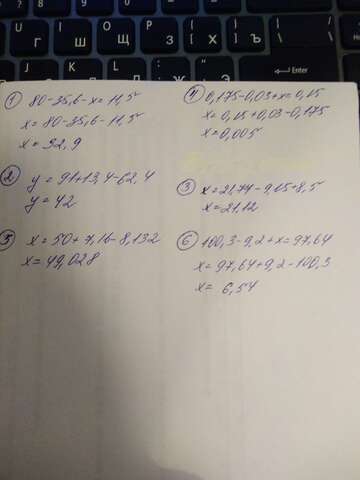 U
Г
I
Ш
O
Щ
P
З
{
Х
}
Ъ
Enter
1 80-35,6-x=11,5
x=80-35,6-11,5
x=32,9
4 0,175-0,03+x=0,15
x=0,15+0,03-0,175
x=0,005
2 y=91+13,4-62,4
y=42
3 x=21,74-9,15+8,5
x=21,12
5 x=50+7,16-8,132
x=49,028
6 100,3-9,2+x=97,64
x=97,64+9,2-100,3
x= 6,54